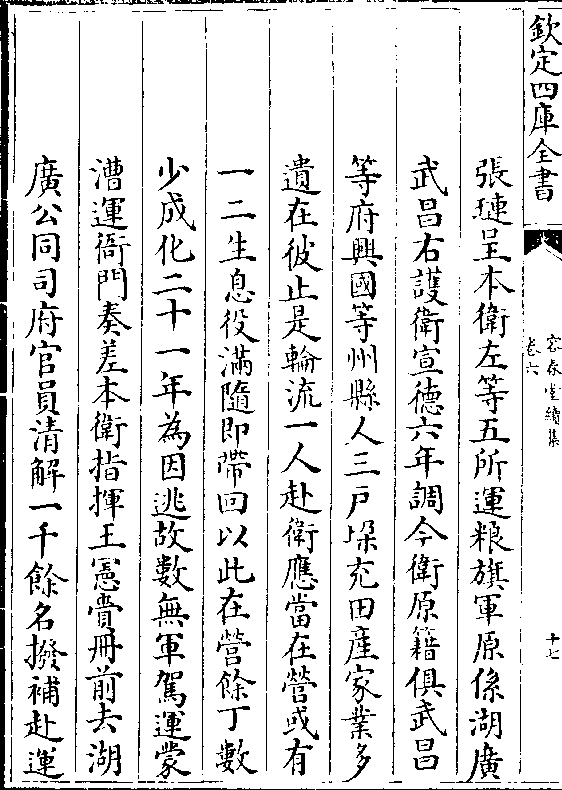 欽定四庫全書
容春堂續集
卷六
十七
張璉呈本衛左等五所運粮旗軍原係湖廣
武昌右護衛宣德六年調今衛原籍俱武昌
等府興國等州縣人三戸垛充田產家業多
遺在彼止是輪流一人赴衛應當在營或有
一二生息役滿隨即帶回以此在營餘丁數
少成化二十一年為因逃故數無軍駕運蒙
漕運衙門奏差本衛指揮王憲賫冊前去湖
廣公同司府官員清解一千餘名撥補赴運